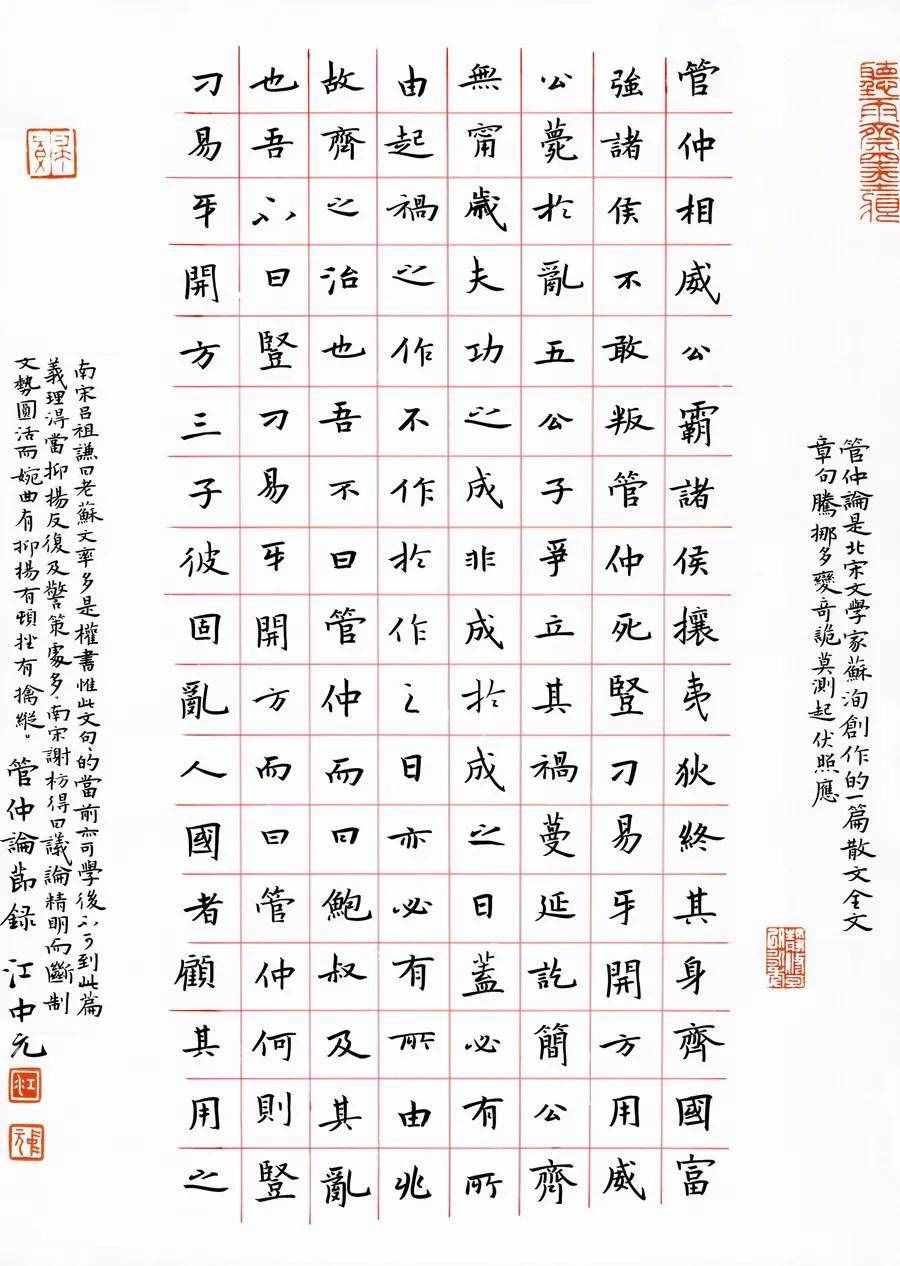 聽雨齋墨
管仲論是北宋文學家蘇洵創作的一篇散文全文
章句騰挪多變奇詭莫測起伏照應
管仲相威公霸諸侯攘夷狄終其身齊國富
強諸侯不敢叛管仲死豎刁易牙開方用威
公薨於亂五公子爭立其禍蔓延訖簡公齊
無甯歲夫功之成非成於成之日蓋必有所
由起禍之作不作於作之日亦必有所由兆
故齊之治也吾不曰管仲而曰鮑叔及其亂
也吾不曰豎刁易牙開方而曰管仲何則豎
刁易牙開方三子彼固亂人國者顧其用之
南宋呂祖謙曰老蘇文率多是權書惟此文句、的當前亦可學後不可到此篇
義理淂當抑揚反復及警策處多南宋謝枋得曰議論精明而斷制
文勢圓活而婉曲有抑揚有頓挫有擒縱。管仲論節錄 江中元
江